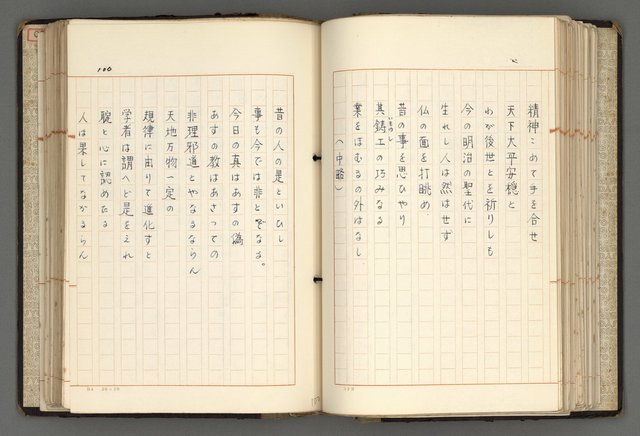 精神こめて手を合せ
天下太平安穏と
わが後世とを祈りしも
今の明治の聖代に
生れし人は然はせず
仏の面を打眺め
昔の事を思ひやり
其鋳工の巧みなる
業をほむるの外はなし
(中略)
昔の人の是といひし
事も今では非となる。
今日の真はあすの偽
あすの教はあさつての
非理邪道とやなるならん
天地万物一定の
規律に由りて進化すと
学者は謂へど是をえれ
腚と心に認めたる
人は果してなかるらん
100